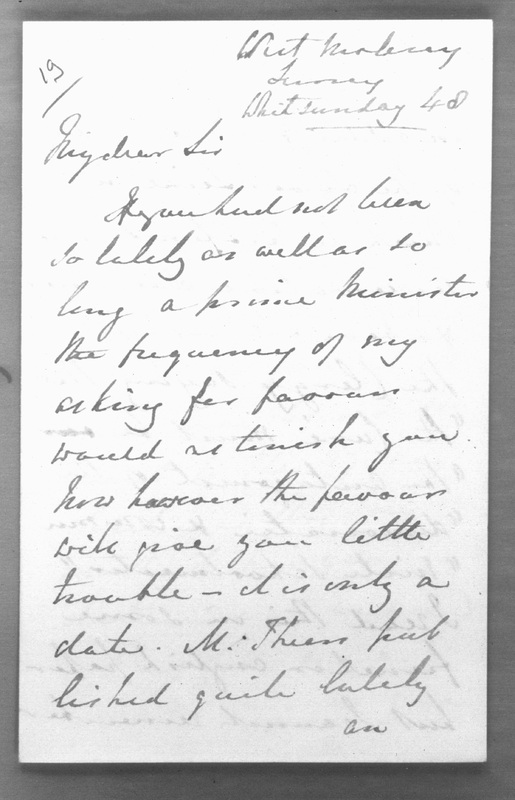 19
West Molesey
Surrey
Whitsunday 48
My dear Sir
If you had not been
so lately as well as so
long a prime Minister
the frequency of my
asking for favours
would astonish you.
Now however the favour
will give you little
trouble – it is only a
date. M. Thiers pub
lished quite lately
an